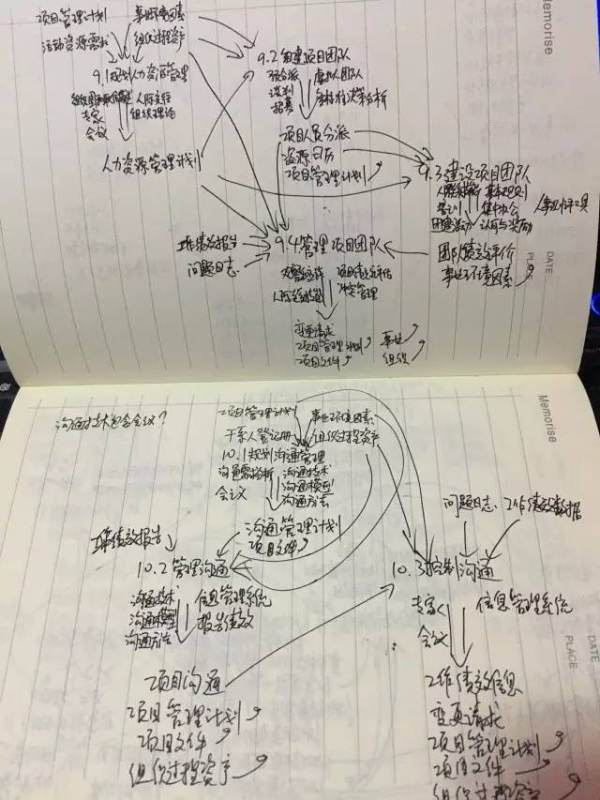 Memorise
项目管理计划 事业环境因素
活动资源需求 组织过程资产
9.1 规划人力资源管理
人际交往
专家 组织理论
会议
人力资源管理计划
9.2 组建项目团队
预分派 虚拟团队
谈判 多标准决策分析
招募
项目人员分派
资源日历
项目管理计划
9.3 建设项目团队
人际关系技能 基本规则
培训 集中办公 人事测评工具
团队建设活动 认可与奖励
团队绩效评价
事业环境因素
工作绩效报告
问题日志
9.4 管理项目团队
观察交谈 项目绩效评估
人际关系技能 冲突管理
变更请求
项目管理计划 事业
项目文件 组织
DATE
PLACE
Memorise
沟通技术包含会议?
项目管理计划 事业环境因素
干系人登记册 组织过程资产
10.1 规划沟通管理
沟通需求分析 沟通技术
会议 沟通模型
沟通方法
沟通管理计划
项目文件
工作绩效报告
10.2 管理沟通
沟通技术 信息管理系统
沟通模型 报告绩效
沟通方法
项目沟通
项目管理计划
项目文件
组织过程资产
问题日志 工作绩效数据
10.3 控制沟通
专家 信息管理系统
会议
工作绩效信息
变更请求
项目管理计划
项目文件
组织过程资产
DATE
PLACE